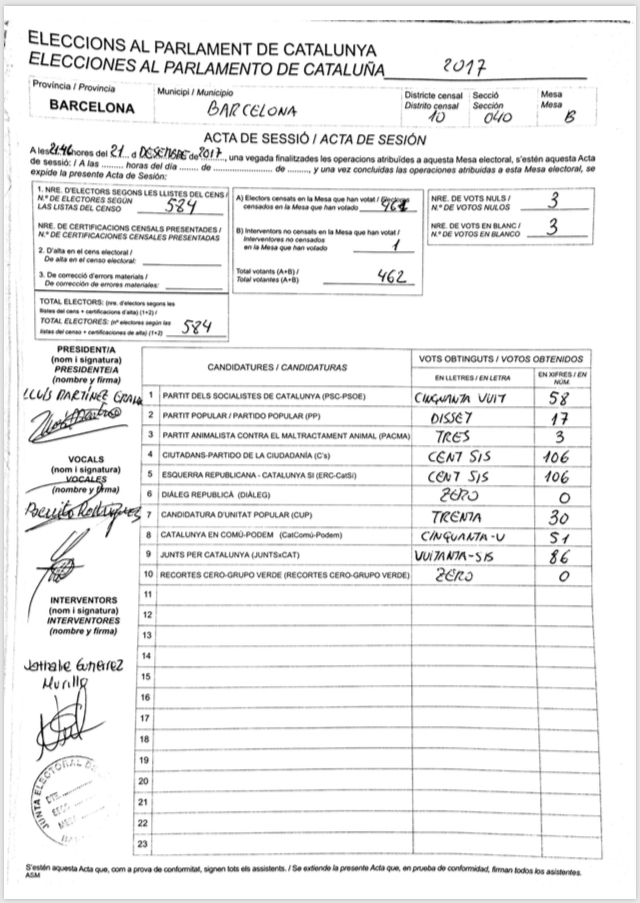 ELECCIONS AL PARLAMENT DE CATALUNYA
ELECCIONES AL PARLAMENTO DE CATALUÑA 2017
Provincia / Provincia
BARCELONA
Municipi / Municipio
BARCELONA
Districte censal
Distrito censal
10
Secció
Sección
040
Mesa
Mesa
B
ACTA DE SESSIÓ / ACTA DE SESIÓN
A les 21.46 hores del 21 d DESEMBRE de 2017, una vegada finalitzades les operacions atribuïdes a aquesta Mesa electoral, s'estén aquesta Acta
de sessió: / A las ......... horas del día ....... de .................... de ........, y una vez concluidas las operaciones atribuidas a esta Mesa electoral, se
expide la presente Acta de Sesión:
1. NRE. D'ELECTORS SEGONS LES LLISTES DEL CENS /
N.º DE ELECTORES SEGÚN
LAS LISTAS DEL CENSO 584
NRE. DE CERTIFICACIONS CENSALS PRESENTADES /
N.º DE CERTIFICACIONES CENSALES PRESENTADAS
2. D'alta en el cens electoral /
De alta en el censo electoral:
3. De correcció d'errors materials /
De corrección de errores materiales:
TOTAL ELECTORS: (nre. d'electors segons les
llistes del cens + certificacions d'alta) (1+2) /
TOTAL ELECTORES: (nº electores según las
listas del censo + certificaciones de alta) (1+2) 584
A) Electors censats en la Mesa que han votat / Electores
censados en la Mesa que han votado 461
B) Interventors no censats en la Mesa que han votat /
Interventores no censados
en la Mesa que han votado 1
Total votants (A+B) /
Total votantes (A+B) 462
NRE. DE VOTS NULS /
N.º DE VOTOS NULOS 3
NRE. DE VOTS EN BLANC /
N.º DE VOTOS EN BLANCO 3
PRESIDENT/A
(nom i signatura)
PRESIDENTE/A
(nombre y firma)
LLUÍS MARTÍNEZ
VOCALS
(nom i signatura)
VOCALES
(nombre y firma)
Benito Rodríguez
INTERVENTORS
(nom i signatura)
INTERVENTORES
(nombre y firma)
Gutiérrez
Murillo
JUNTA ELECTORAL DE
CANDIDATURES / CANDIDATURAS
VOTS OBTINGUTS / VOTOS OBTENIDOS
EN LLETRES / EN LETRA
EN XIFRES / EN NÚM.
1 PARTIT DELS SOCIALISTES DE CATALUNYA (PSC-PSOE) CINQUANTA VUIT 58
2 PARTIT POPULAR / PARTIDO POPULAR (PP) DISSET 17
3 PARTIT ANIMALISTA CONTRA EL MALTRACTAMENT ANIMAL (PACMA) TRES 3
4 CIUTADANS-PARTIDO DE LA CIUDADANÍA (C's) CENT SIS 106
5 ESQUERRA REPUBLICANA - CATALUNYA SÍ (ERC-CatSí) CENT SIS 106
6 DIÀLEG REPUBLICÀ (DIÀLEG) ZERO 0
7 CANDIDATURA D'UNITAT POPULAR (CUP) TRENTA 30
8 CATALUNYA EN COMÚ-PODEM (CatComú-Podem) CINQUANTA-U 51
9 JUNTS PER CATALUNYA (JUNTSxCAT) VUITANTA-SIS 86
10 RECORTES CERO-GRUPO VERDE (RECORTES CERO-GRUPO VERDE) ZERO 0
11
12
13
14
15
16
17
18
19
20
21
22
23
S'estén aquesta Acta que, com a prova de conformitat, signen tots els assistents. / Se extiende la presente Acta que, en prueba de conformidad, firman todos los asistentes.
ASM